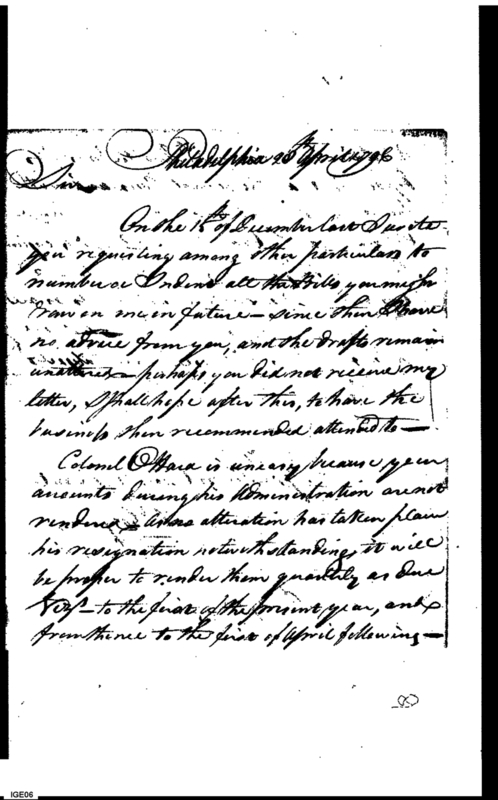 Philadelphia 28th April 1796
Sir
On the 15th of December last I wrote
you requesting among other particulars to
number or Indent all the Bills you might
draw on me in future – since then I have
no advice from you, and the drafts remain
unaltered – perhaps you did not receive my
letter, I shall hope after this, to have the
business then recommended attended to —
Colonel OHara is uneasy because your
accounts during his Administration are not
rendered – as no alteration has taken place
his resignation notwithstanding, it will
be proper to render them quarterly as due
to the first of the present year, and
from thence to the first of April following —
IGE06